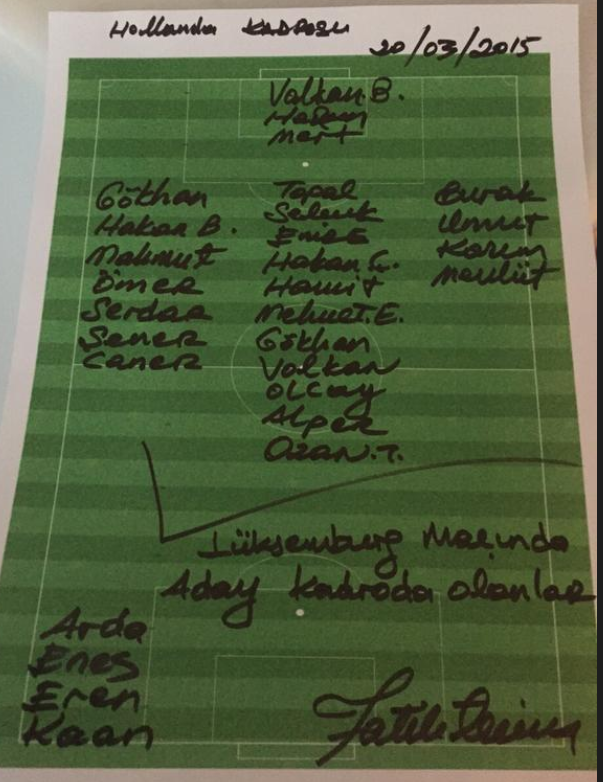 Hollanda KADROSU
20/03/2015
Volkan B.
Harun
Mert
Gökhan
Hakan B.
Mahmut
Ömer
Serdar
Şener
Caner
Topal
Selçuk
Emre
Hakan Ç.
Hamit
Mehmet.E.
Gökhan
Volkan
Olcay
Alper
Ozan.T.
Burak
Umut
Kerim
Mevlüt
Lüksemburg Maçında
Aday Kadroda olanlar
Arda
Enes
Eren
Kaan
Fatih Terim